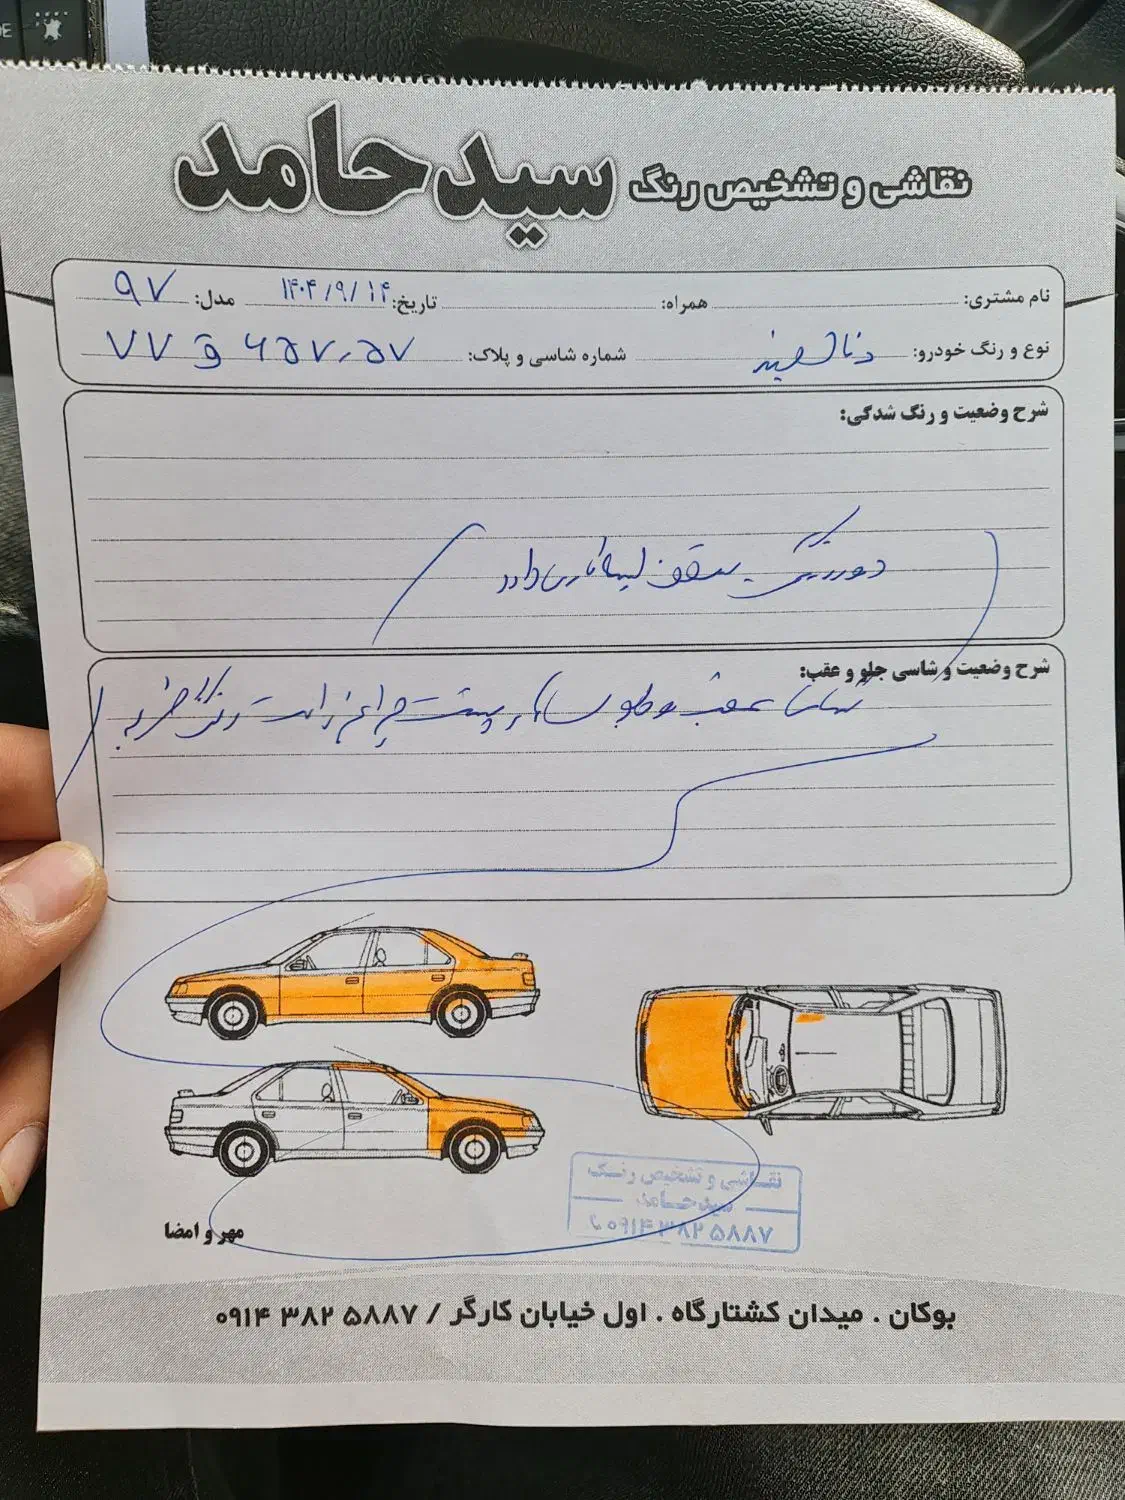 نقاشی و تشخیص رنگ سیدحامد
نام مشتری: همراه: تاریخ: ۱۴۰۴/۹/۱۴ مدل: ۹۷
نوع و رنگ خودرو: دنا سفید شماره شاسی و پلاک: ۷۷ ق ۶۵۷،۵۷
شرح وضعیت و رنگ شدگی:
دوررنگ سقف لیسه‌کاری دارد
شرح وضعیت و شاسی جلو و عقب:
عقب و جلو سالم پشت چراغ راست
مهر و امضا
نقاشی و تشخیص رنگ
سیدحامد
۰۹۱۴ ۳۸۲ ۵۸۸۷
بوکان . میدان کشتارگاه . اول خیابان کارگر / ۰۹۱۴ ۳۸۲ ۵۸۸۷